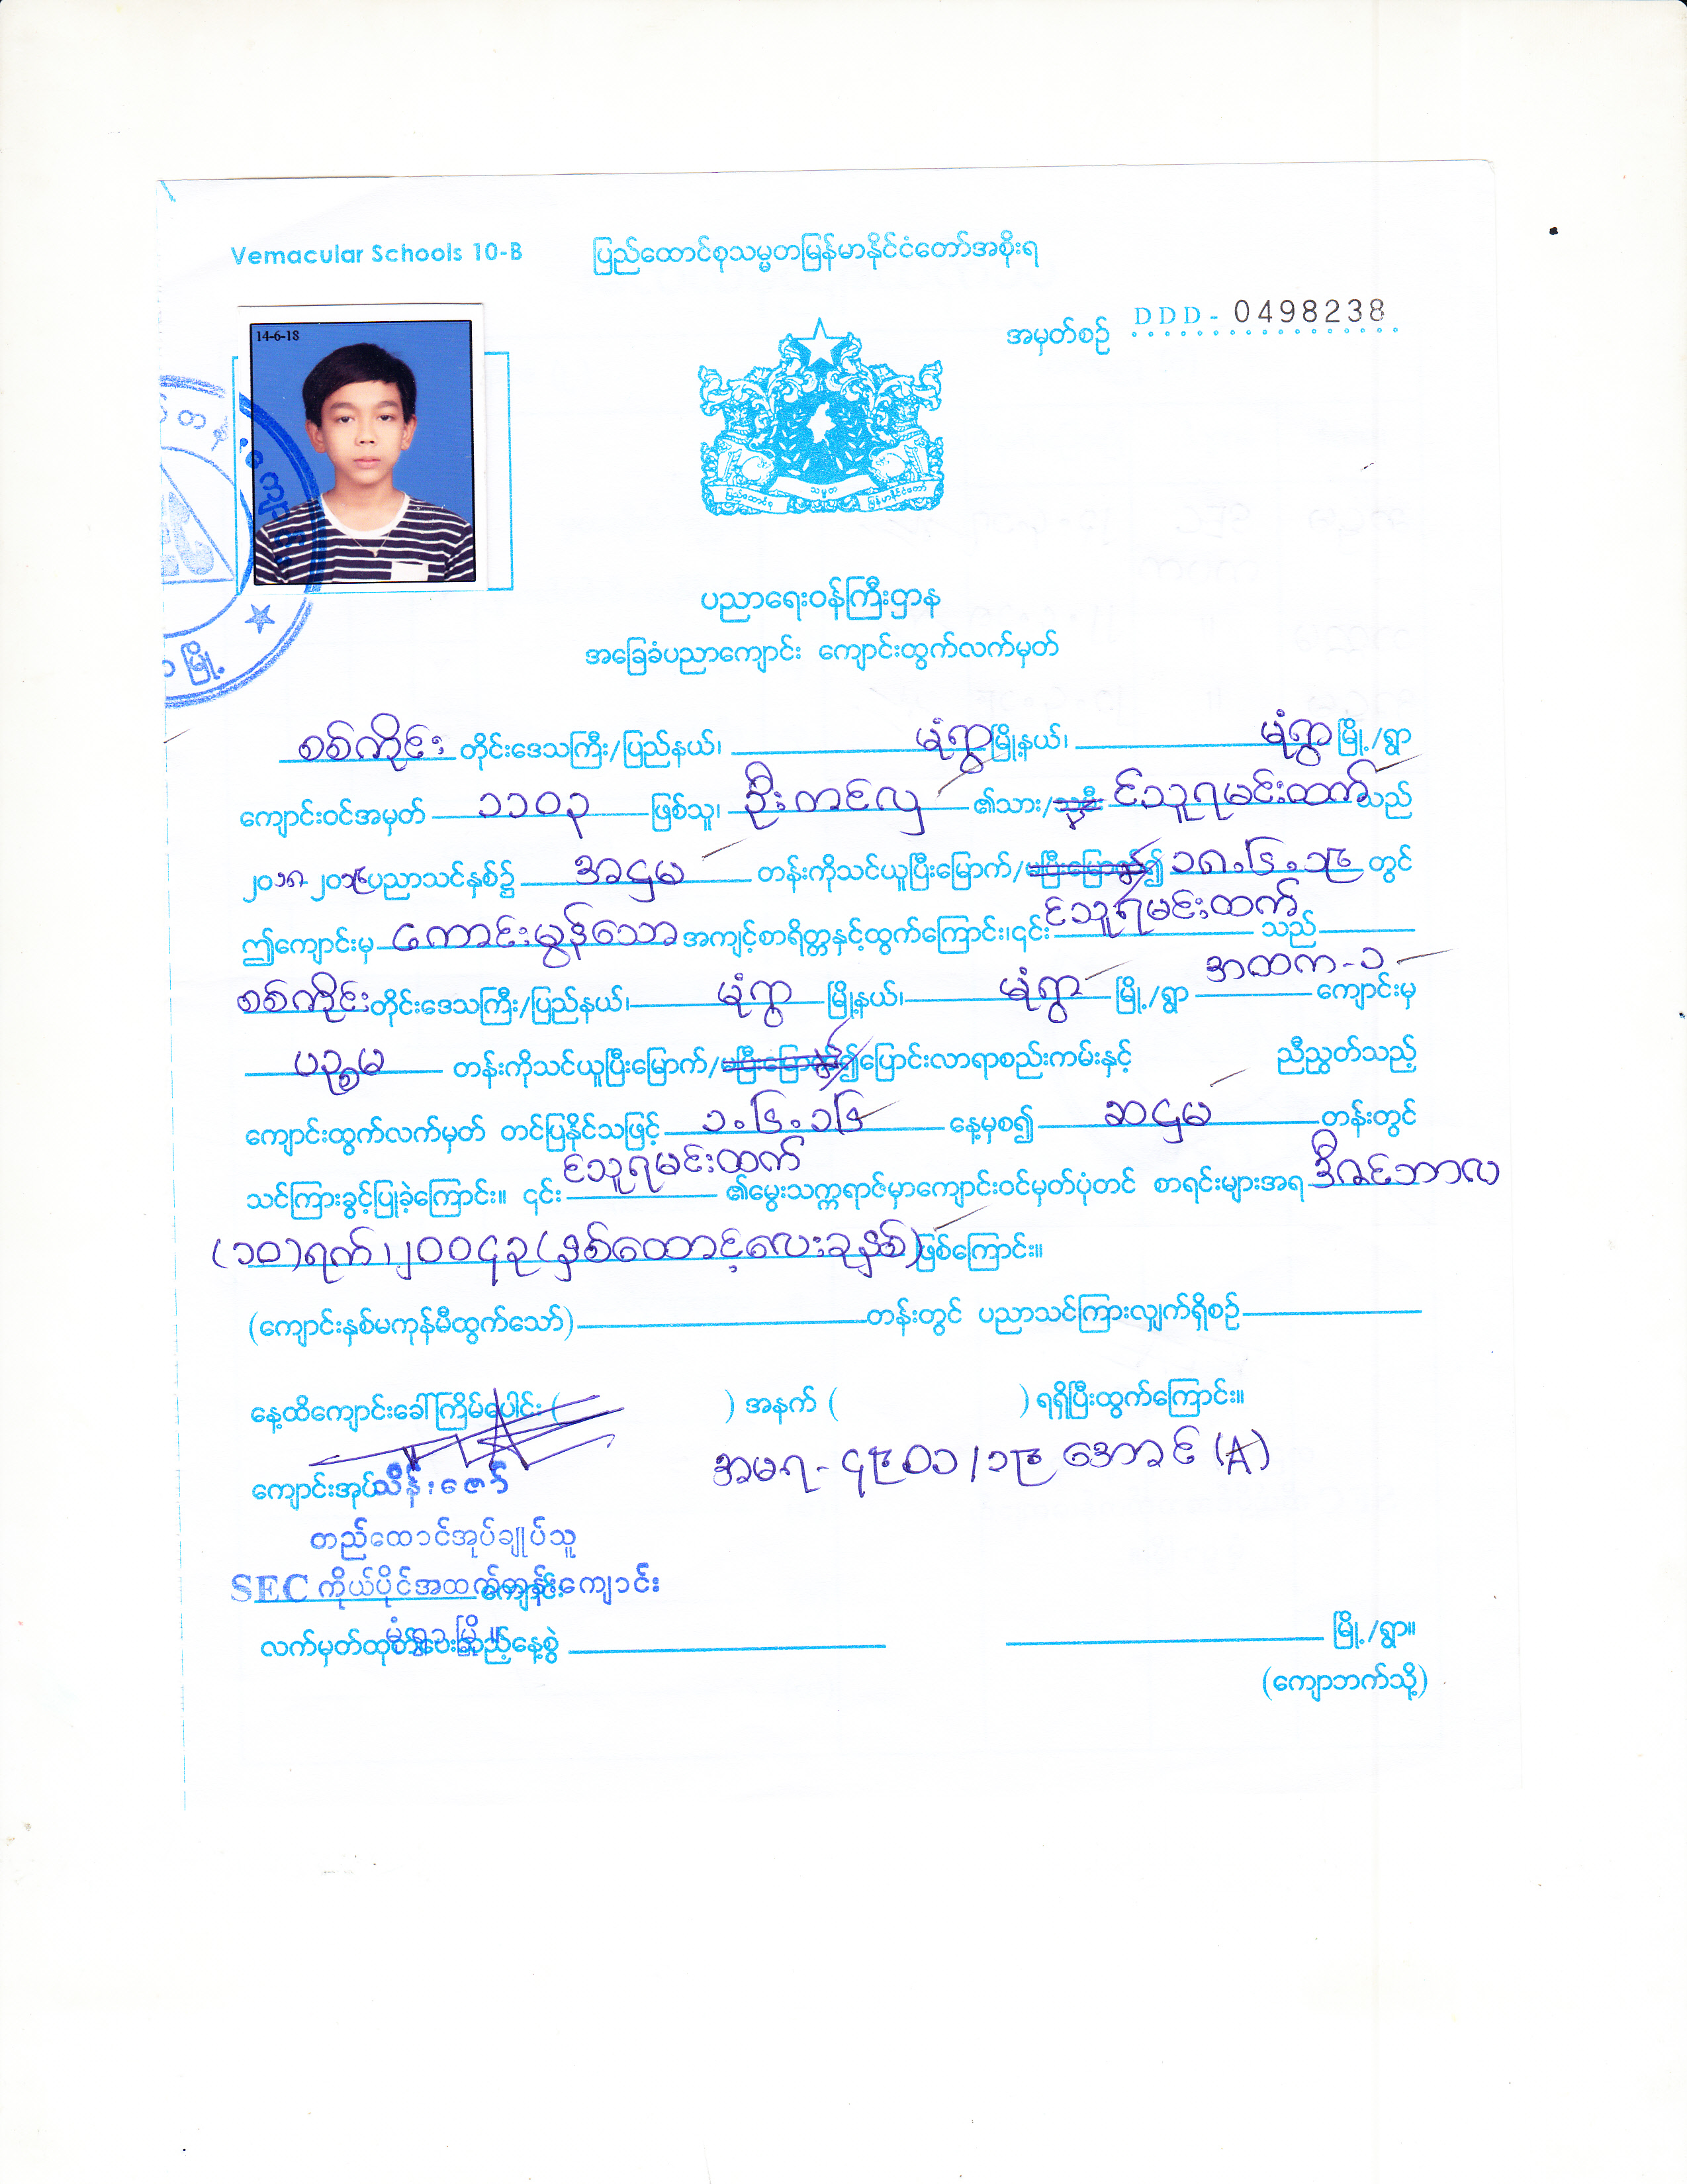 Vemacular Schools 10-B
ပြည်ထောင်စုသမ္မတမြန်မာနိုင်ငံတော်အစိုးရ
အမှတ်စဉ် DDD - 0498238
14-6-18
ပညာရေးဝန်ကြီးဌာန
အခြေခံပညာကျောင်း ကျောင်းထွက်လက်မှတ်
စစ်ကိုင်း တိုင်းဒေသကြီး/ပြည်နယ်၊ မုံရွာ မြို့နယ်၊ မုံရွာ မြို့/ရွာ
ကျောင်းဝင်အမှတ် ၁၁၀၃ ဖြစ်သူ၊ ဦးတင်လှ ၏သား/သမီး င်သူရမင်းထက် သည်
၂၀၁၈-၂၀၁၉ ပညာသင်နှစ်၌ အဌမ တန်းကိုသင်ယူပြီးမြောက်/မပြီးမြောက်၍ ၁၈.၆.၁၉ တွင်
ဤကျောင်းမှ ကောင်းမွန်သော အကျင့်စာရိတ္တနှင့်ထွက်ကြောင်း၊၎င်း င်သူရမင်းထက် သည်
စစ်ကိုင်း တိုင်းဒေသကြီး/ပြည်နယ်၊ မုံရွာ မြို့နယ်၊ မုံရွာ မြို့/ရွာ အထက-၁ ကျောင်းမှ
ပဉ္စမ တန်းကိုသင်ယူပြီးမြောက်/မပြီးမြောက်၍ပြောင်းလာရာစည်းကမ်းနှင့် ညီညွတ်သည့်
ကျောင်းထွက်လက်မှတ် တင်ပြနိုင်သဖြင့် ၁.၆.၁၆ နေ့မှစ၍ ဆဌမ တန်းတွင်
သင်ကြားခွင့်ပြုခဲ့ကြောင်း။ ၎င်း င်သူရမင်းထက် ၏မွေးသက္ကရာဇ်မှာကျောင်းဝင်မှတ်ပုံတင် စာရင်းများအရ ဒီဇင်ဘာလ
(၁၀)ရက်၊၂၀၀၄ခု(နှစ်ထောင့်လေးခုနှစ်)ဖြစ်ကြောင်း။
(ကျောင်းနှစ်မကုန်မီထွက်သော်) တန်းတွင် ပညာသင်ကြားလျှက်ရှိစဉ်
နေ့ထိကျောင်းခေါ်ကြိမ်ပေါင်း ( ) အနက် ( ) ရရှိပြီးထွက်ကြောင်း။
အမရ-၄၉၀၁/၁၉ အောင် (A)
ကျောင်းအုပ် သိန်းဇော်
တည်ထောင်အုပ်ချုပ်သူ
SEC ကိုယ်ပိုင်အထက်တန်းကျောင်း
မုံရွာမြို့။
လက်မှတ်ထုတ်ပေးသည့်နေ့စွဲ မြို့/ရွာ။
(ကျောဘက်သို့)